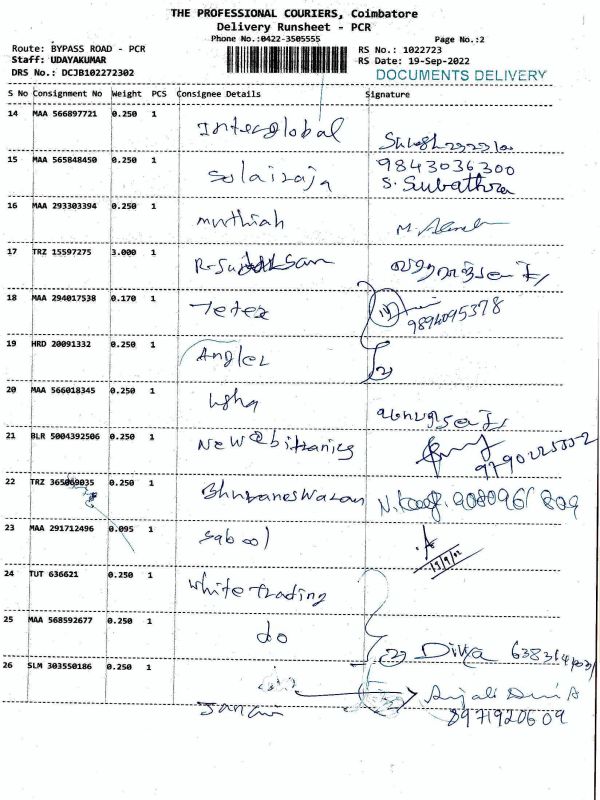 THE PROFESSIONAL COURIERS, Coimbatore
Delivery Runsheet - PCR
Phone No.:0422-3505555
Page No.:2
Route: BYPASS ROAD - PCR
RS No.: 1022723
Staff: UDAYAKUMAR
RS Date: 19-Sep-2022
DRS No.: DCJB102272302
DOCUMENTS DELIVERY
S No Consignment No Weight PCS Consignee Details Signature
14 MAA 566897721 0.250 1 Interglobal
15 MAA 565848450 0.250 1 Sulairaja 9843036300
S. Subathra
16 MAA 293303394 0.250 1 muthiah
17 TRZ 15597275 3.000 1
18 MAA 294017538 0.170 1 Tetex 9894095378
19 HRD 20091332 0.250 1 Angler
20 MAA 566018345 0.250 1 usha
21 BLR 5004392506 0.250 1
22 TRZ 365069035 0.250 1 Bhuvaneswaran
23 MAA 291712496 0.095 1
24 TUT 636621 0.250 1 white trading
25 MAA 568592677 0.250 1 do Divya
26 SLM 303550186 0.250 1 Anjali
8971920609